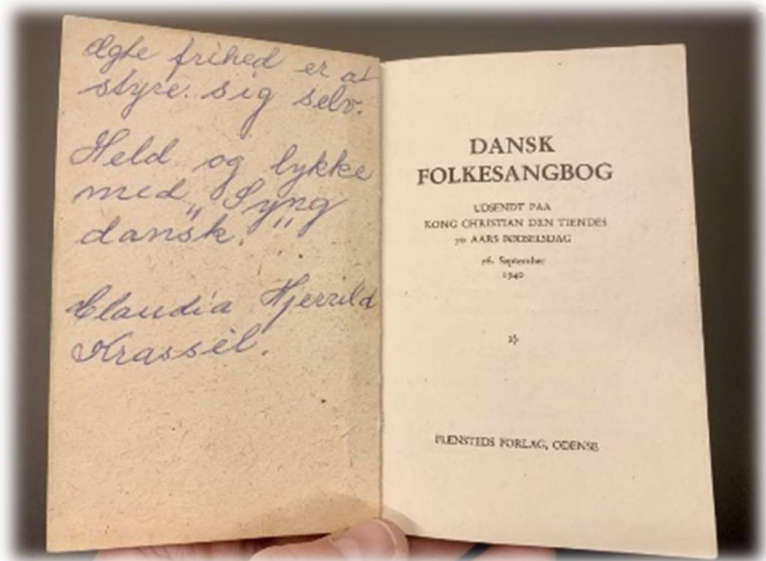 Ægte frihed er at
styre sig selv.
Held og lykke
med "Syng
dansk."
Claudia Hjerrild
Krassèl.
DANSK
FOLKESANGBOG
UDSENDT PAA
KONG CHRISTIAN DEN TIENDES
70 AARS FØDSELSDAG
26. September
1940
FLENSTEDS FORLAG, ODENSE